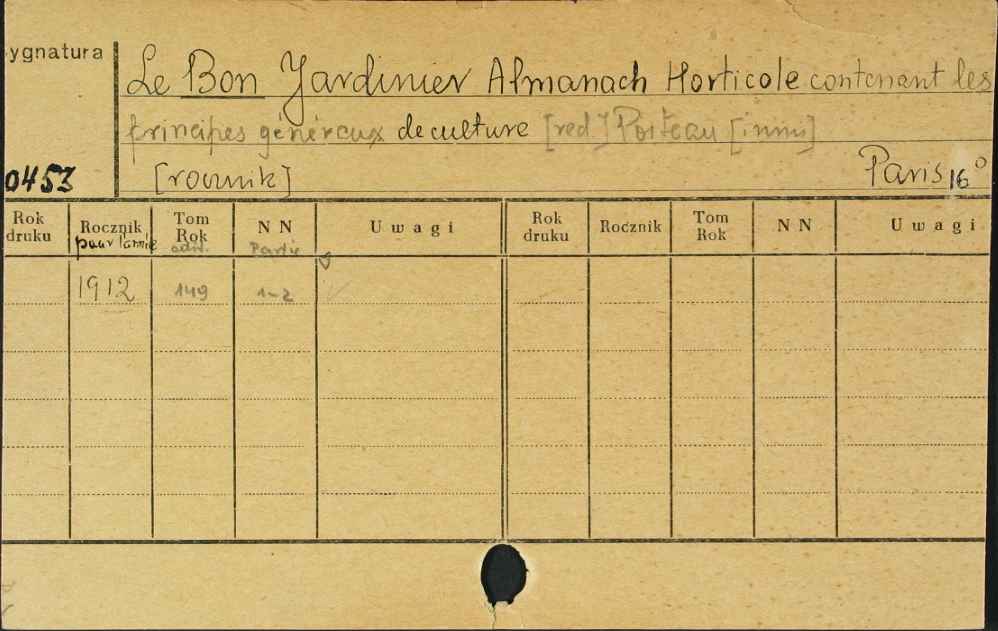 ygnatura
Le Bon Jardinier Almanach Horticole contenant les
principes généreaux de culture [red.] Poiteau [i inni]
0453 [rocznik] Paris 16°
Rok druku Rocznik Tom Rok N N Uwagi Rok druku Rocznik Tom Rok N N Uwagi
pour l'année edit. Partie
1912 149 1-2